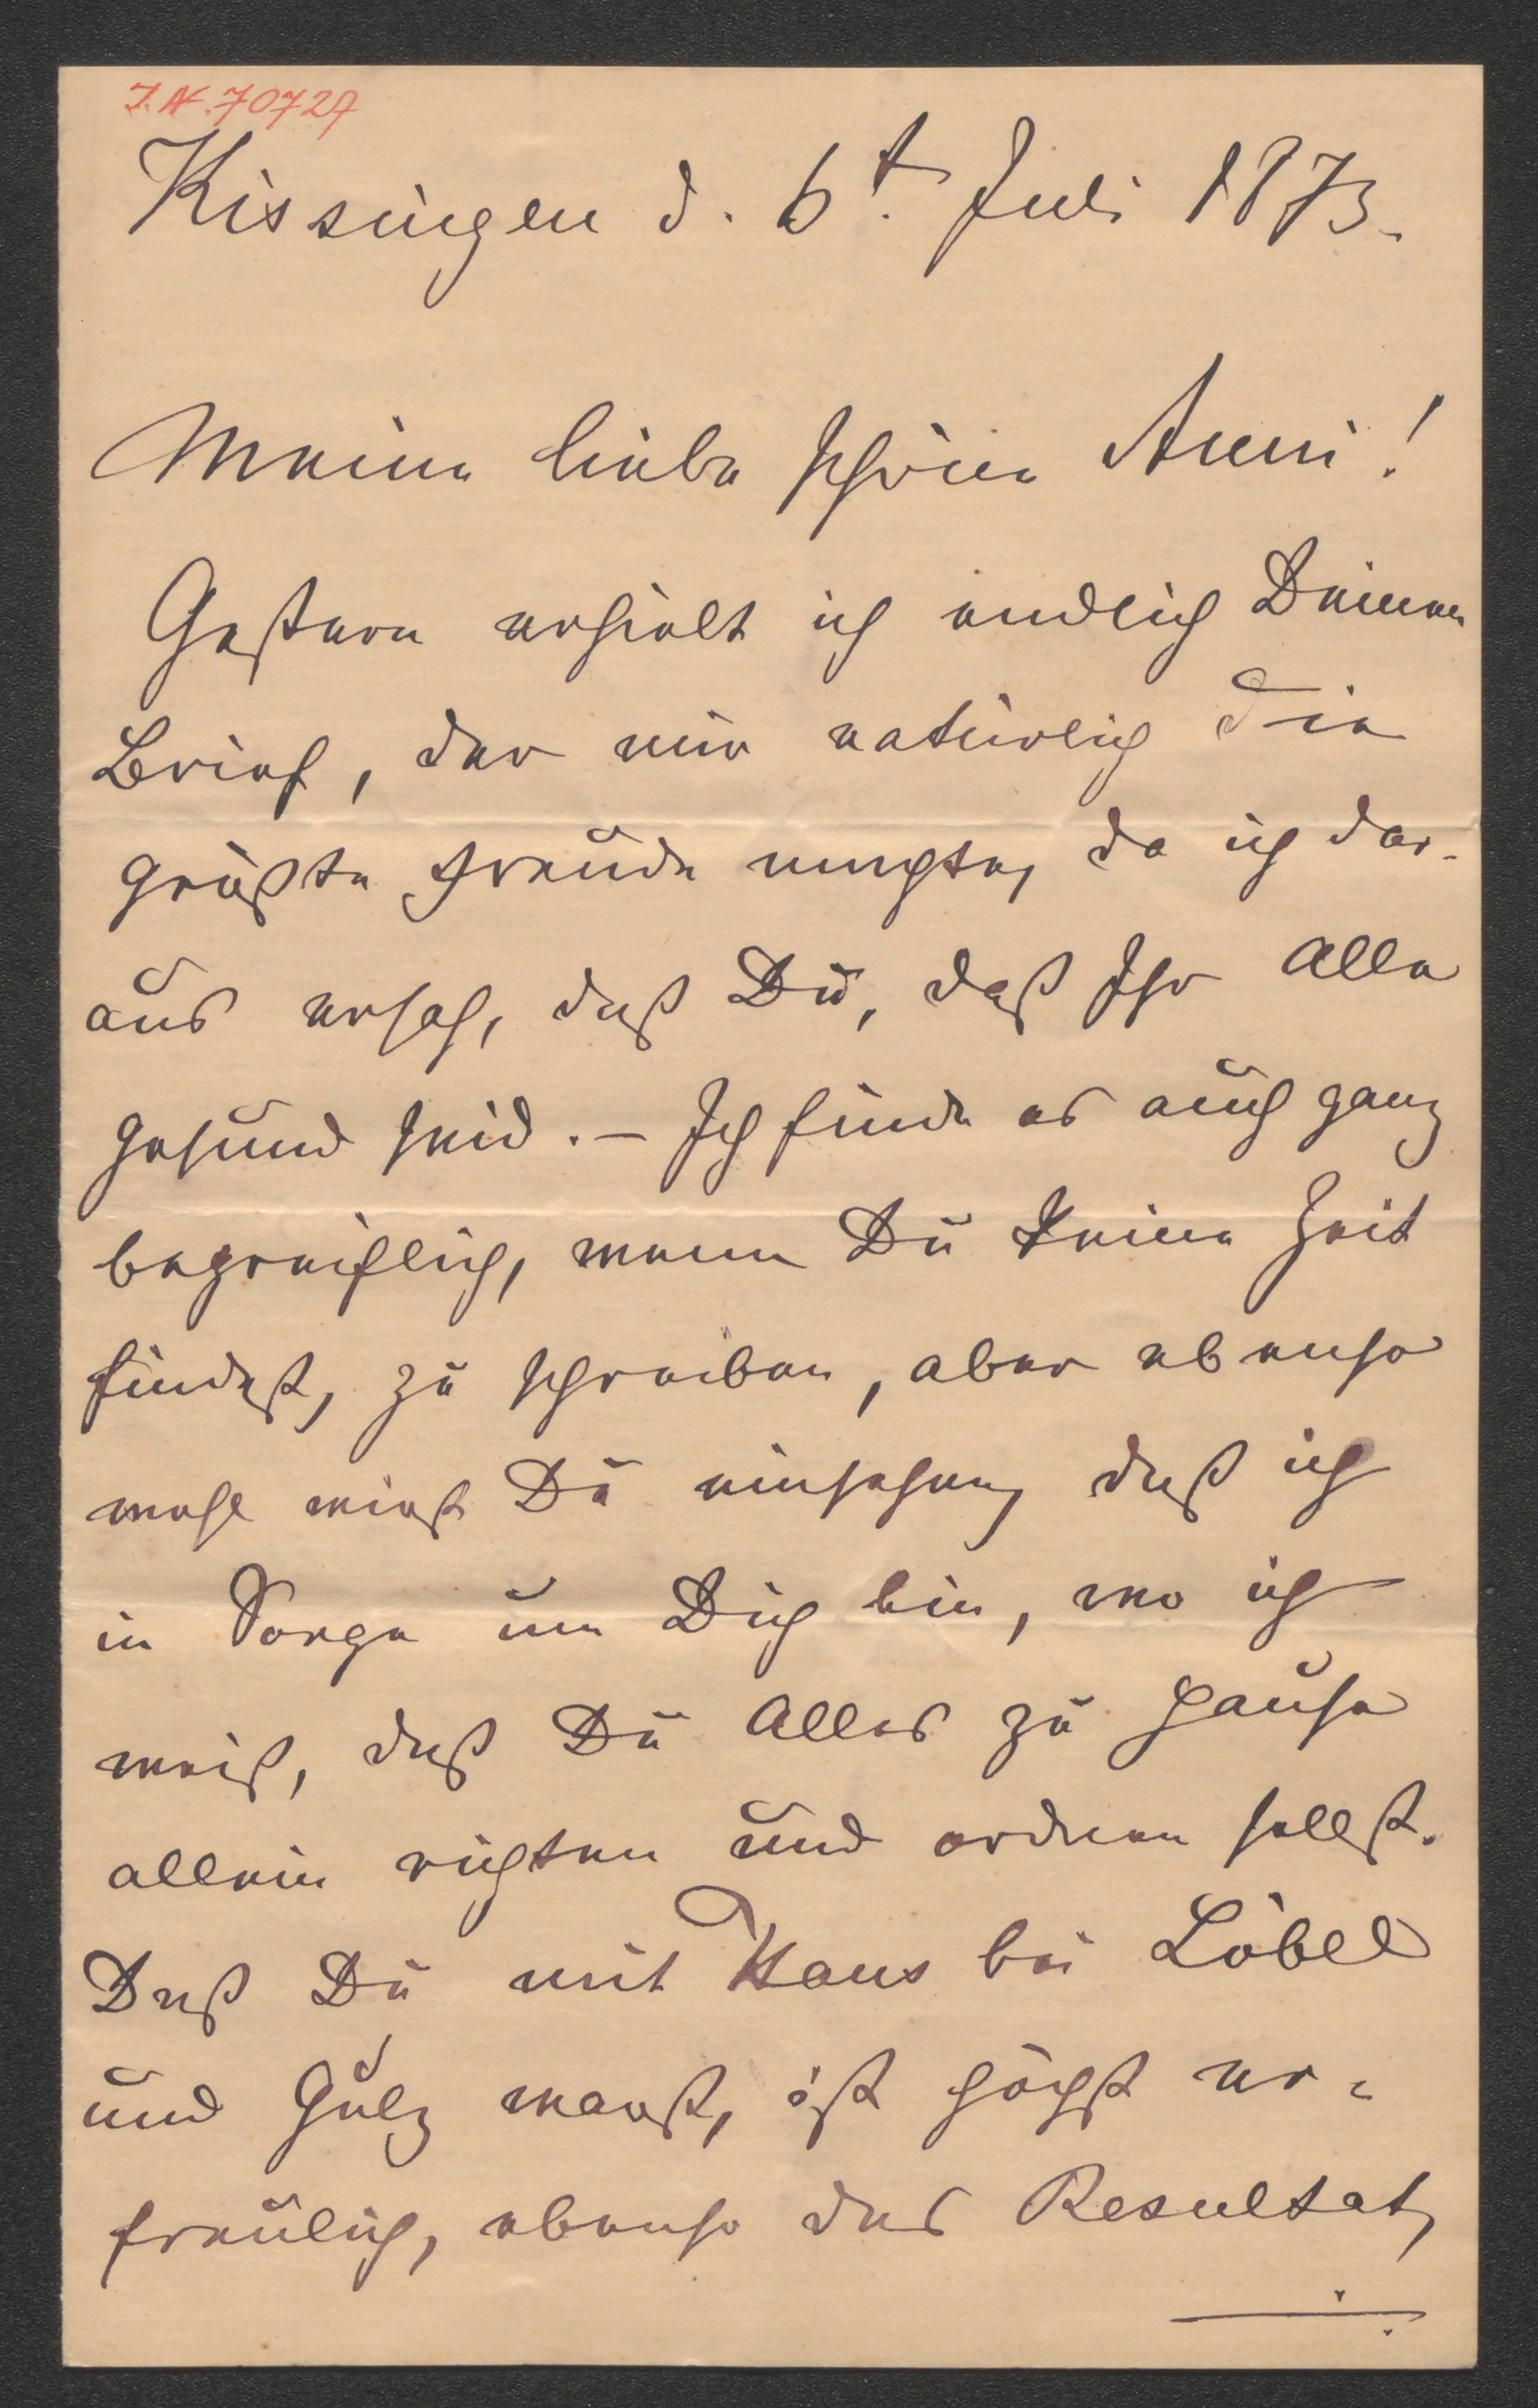 I.N. 70727
Kissingen d. 6t. Juli 1873.
Meine liebe schöne Anni!
Gestern erhielt ich endlich Deinen
Brief, der mir natürlich die
größte Freude machte, da ich dar-
aus ersah, daß Du, daß Ihr Alle
gesund seid. – Ich finde es auch ganz
begreiflich, wenn Du keine Zeit
findest, zu schreiben, aber ebenso
wohl wirst Du einsehen, daß ich
in Sorge um Dich bin, wo ich
weiß, daß Du Alles zu Hause
allein richten und ordnen sollst.
Daß Du mit Hans bei Löbel
und Gulz warst, ist höchst er-
freulich, ebenso das Resultat,